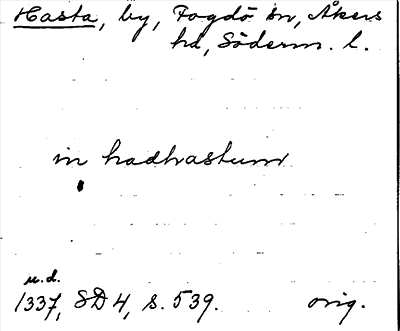 Hasta, by, Fogdö sn, Åkers
hd, Söderm. l.
in hadhastum
u.d.
1337, SD 4, s. 539. orig.